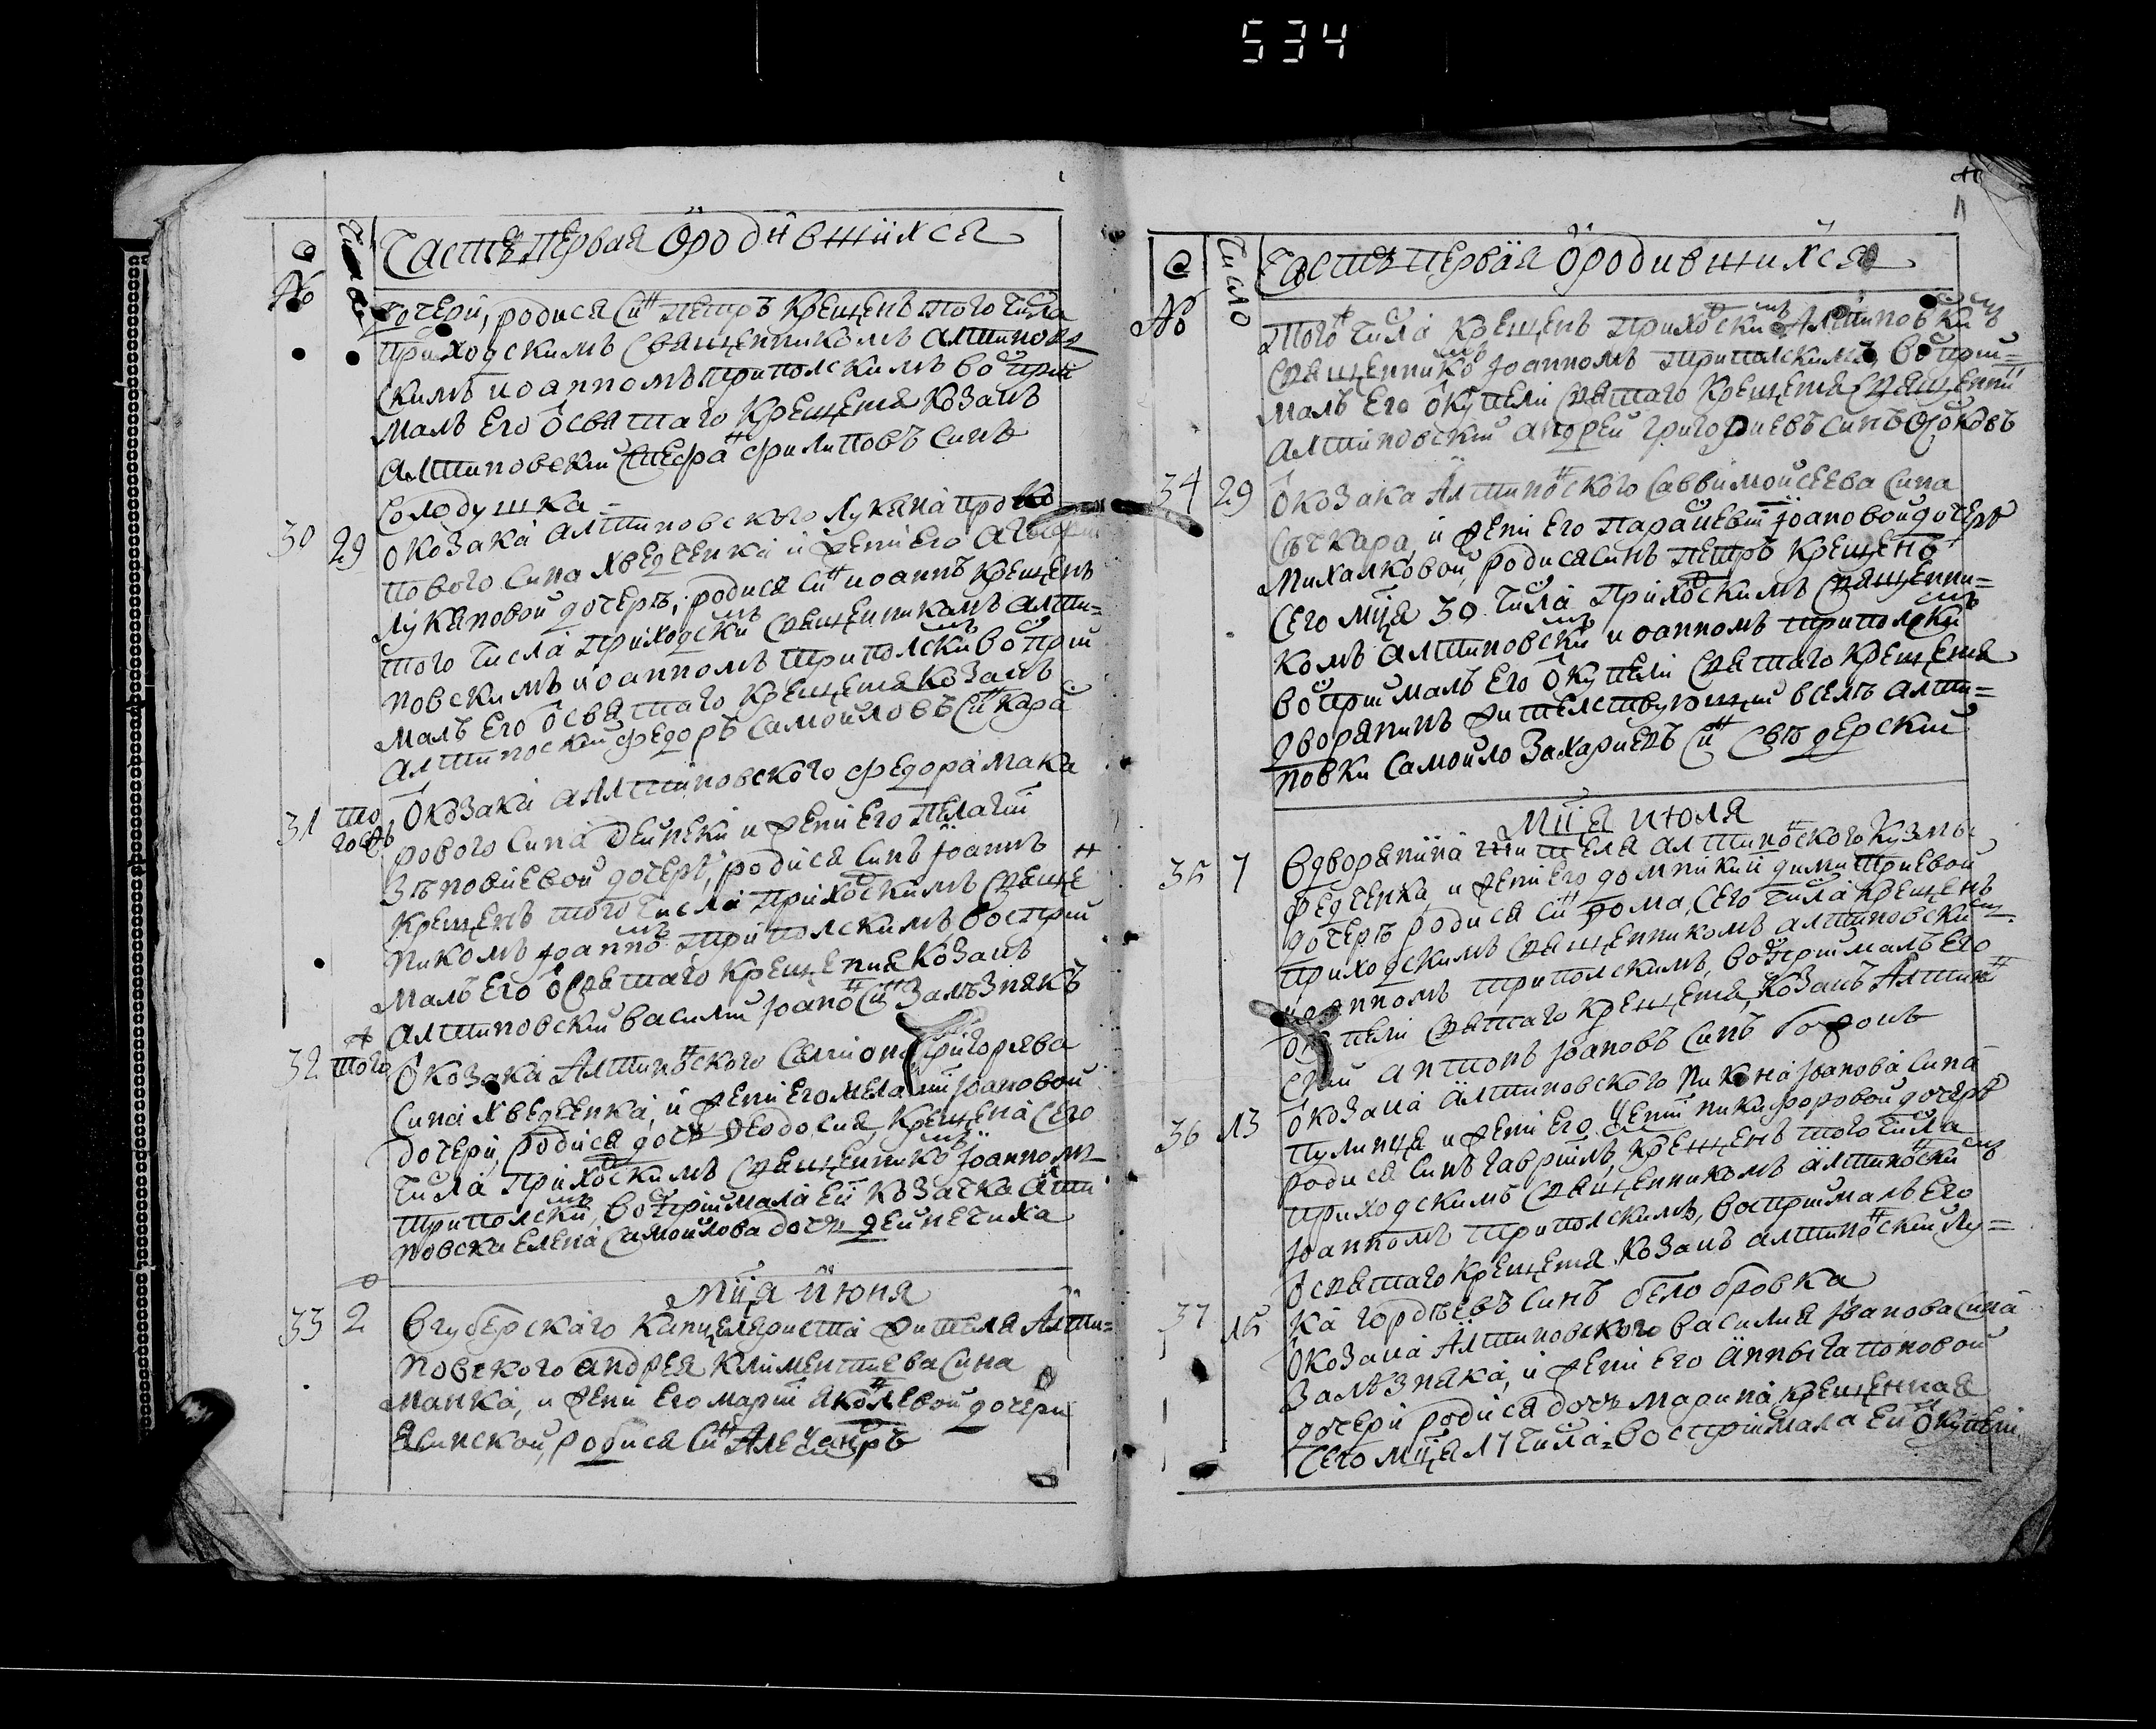 534
Часть первая ородившихся
№ Число
дочери, родися Сн петръ крещенъ того числа
приходскимъ Священникомъ алтинов
скимъ иоанномъ триполскимъ воспри
малъ его ѿ святаго крещения козакъ
алтиновский Стефан филиповъ синъ
Солодушка =
30 29 Ѿ козака алтиновского лукяна проко
пового сина хведченка и жени его
лукяновой дочеръ, родися Сн иоаннъ крещенъ
того числа приходским Священникомъ алти=
новскимъ иоанномъ триполским воспри
малъ его ѿ святаго крещения козакъ
алтиновский федоръ Самойловъ
31 то гожъ Ѿ козака алтиновского федора мака
рового сина дейнеки и жени его пелагии
зѣновиевой дочеръ, родися синъ иоаннъ
крещенъ того числа приходскимъ Священ
никомъ иоанном триполскимъ, воспри
малъ его ѿ Святаго крещения козакъ
алтиновский василий иоанов Сн залѣзнякъ
32 того Ѿ козака Алтиновского Симиона Григорява
сина хведченка, и жени его мелании иоановой
дочери, родися дочъ феодосия, крещена сего
числа приходскимъ Священником иоанномъ
триполским, восприймала ей козачка алти
новска елена Самойлова дочъ дейнечиха
мца июня
33 2 Ѿ губерскаго канцеляриста жителя Алти=
новского андрея климентиева сина
манка, и жени его марии яковлевой дочери
родися Сн Александръ
11
Часть первая ородившихся
№ Число
того числа крещенъ приходским Алтиновским
Священником иоанномъ триполскимъ, воспри=
малъ его ѿ купели Святаго крещения Священник
алтиновский андрей григориевъ синъ
34 29 Ѿ козака Алтиновского Савви моисеева сина
и жени его параскевии иоановой дочеръ
михалковой, родися синъ петръ крещенъ
сего мца 30 числа приходскимъ Священни=
комъ алтиновским иоанномъ триполским
восприималъ его ѿ купели Святаго крещения
дворянинъ жителствующий в селѣ алти=
новки Самойло Захариевъ Сн Свѣдерский
мца июля
35 7 Ѿ дворянина жителя алтиновского кузмы
федченка, и жени его домникии димитриевой
дочеръ родися Сн фома, сего числа крещенъ
приходскимъ Священникомъ алтиновским
иоанномъ триполскимъ, восприималъ его
ѿ купели Святаго крещения, козакъ Алтинов
ский антонъ иоановъ синъ
36 13 Ѿ козака алтиновского никона иоанова сина
пулинца и жени его ксении никифоровой дочеръ
родися синъ гавриилъ крещенъ того числа
приходскимъ Священникомъ алтиновским
иоанномъ триполскимъ, восприималъ его
ѿ святаго крещения козакъ алтиновский лу=
ка гордѣевъ синъ белобровка
37 15 Ѿ козака Алтиновского василия иоанова сина
залѣзняка, и жени его анны гапоновой
дочери родися дочъ марина крещенная
сего мца 17 числа = восприймала ей ѿ купели